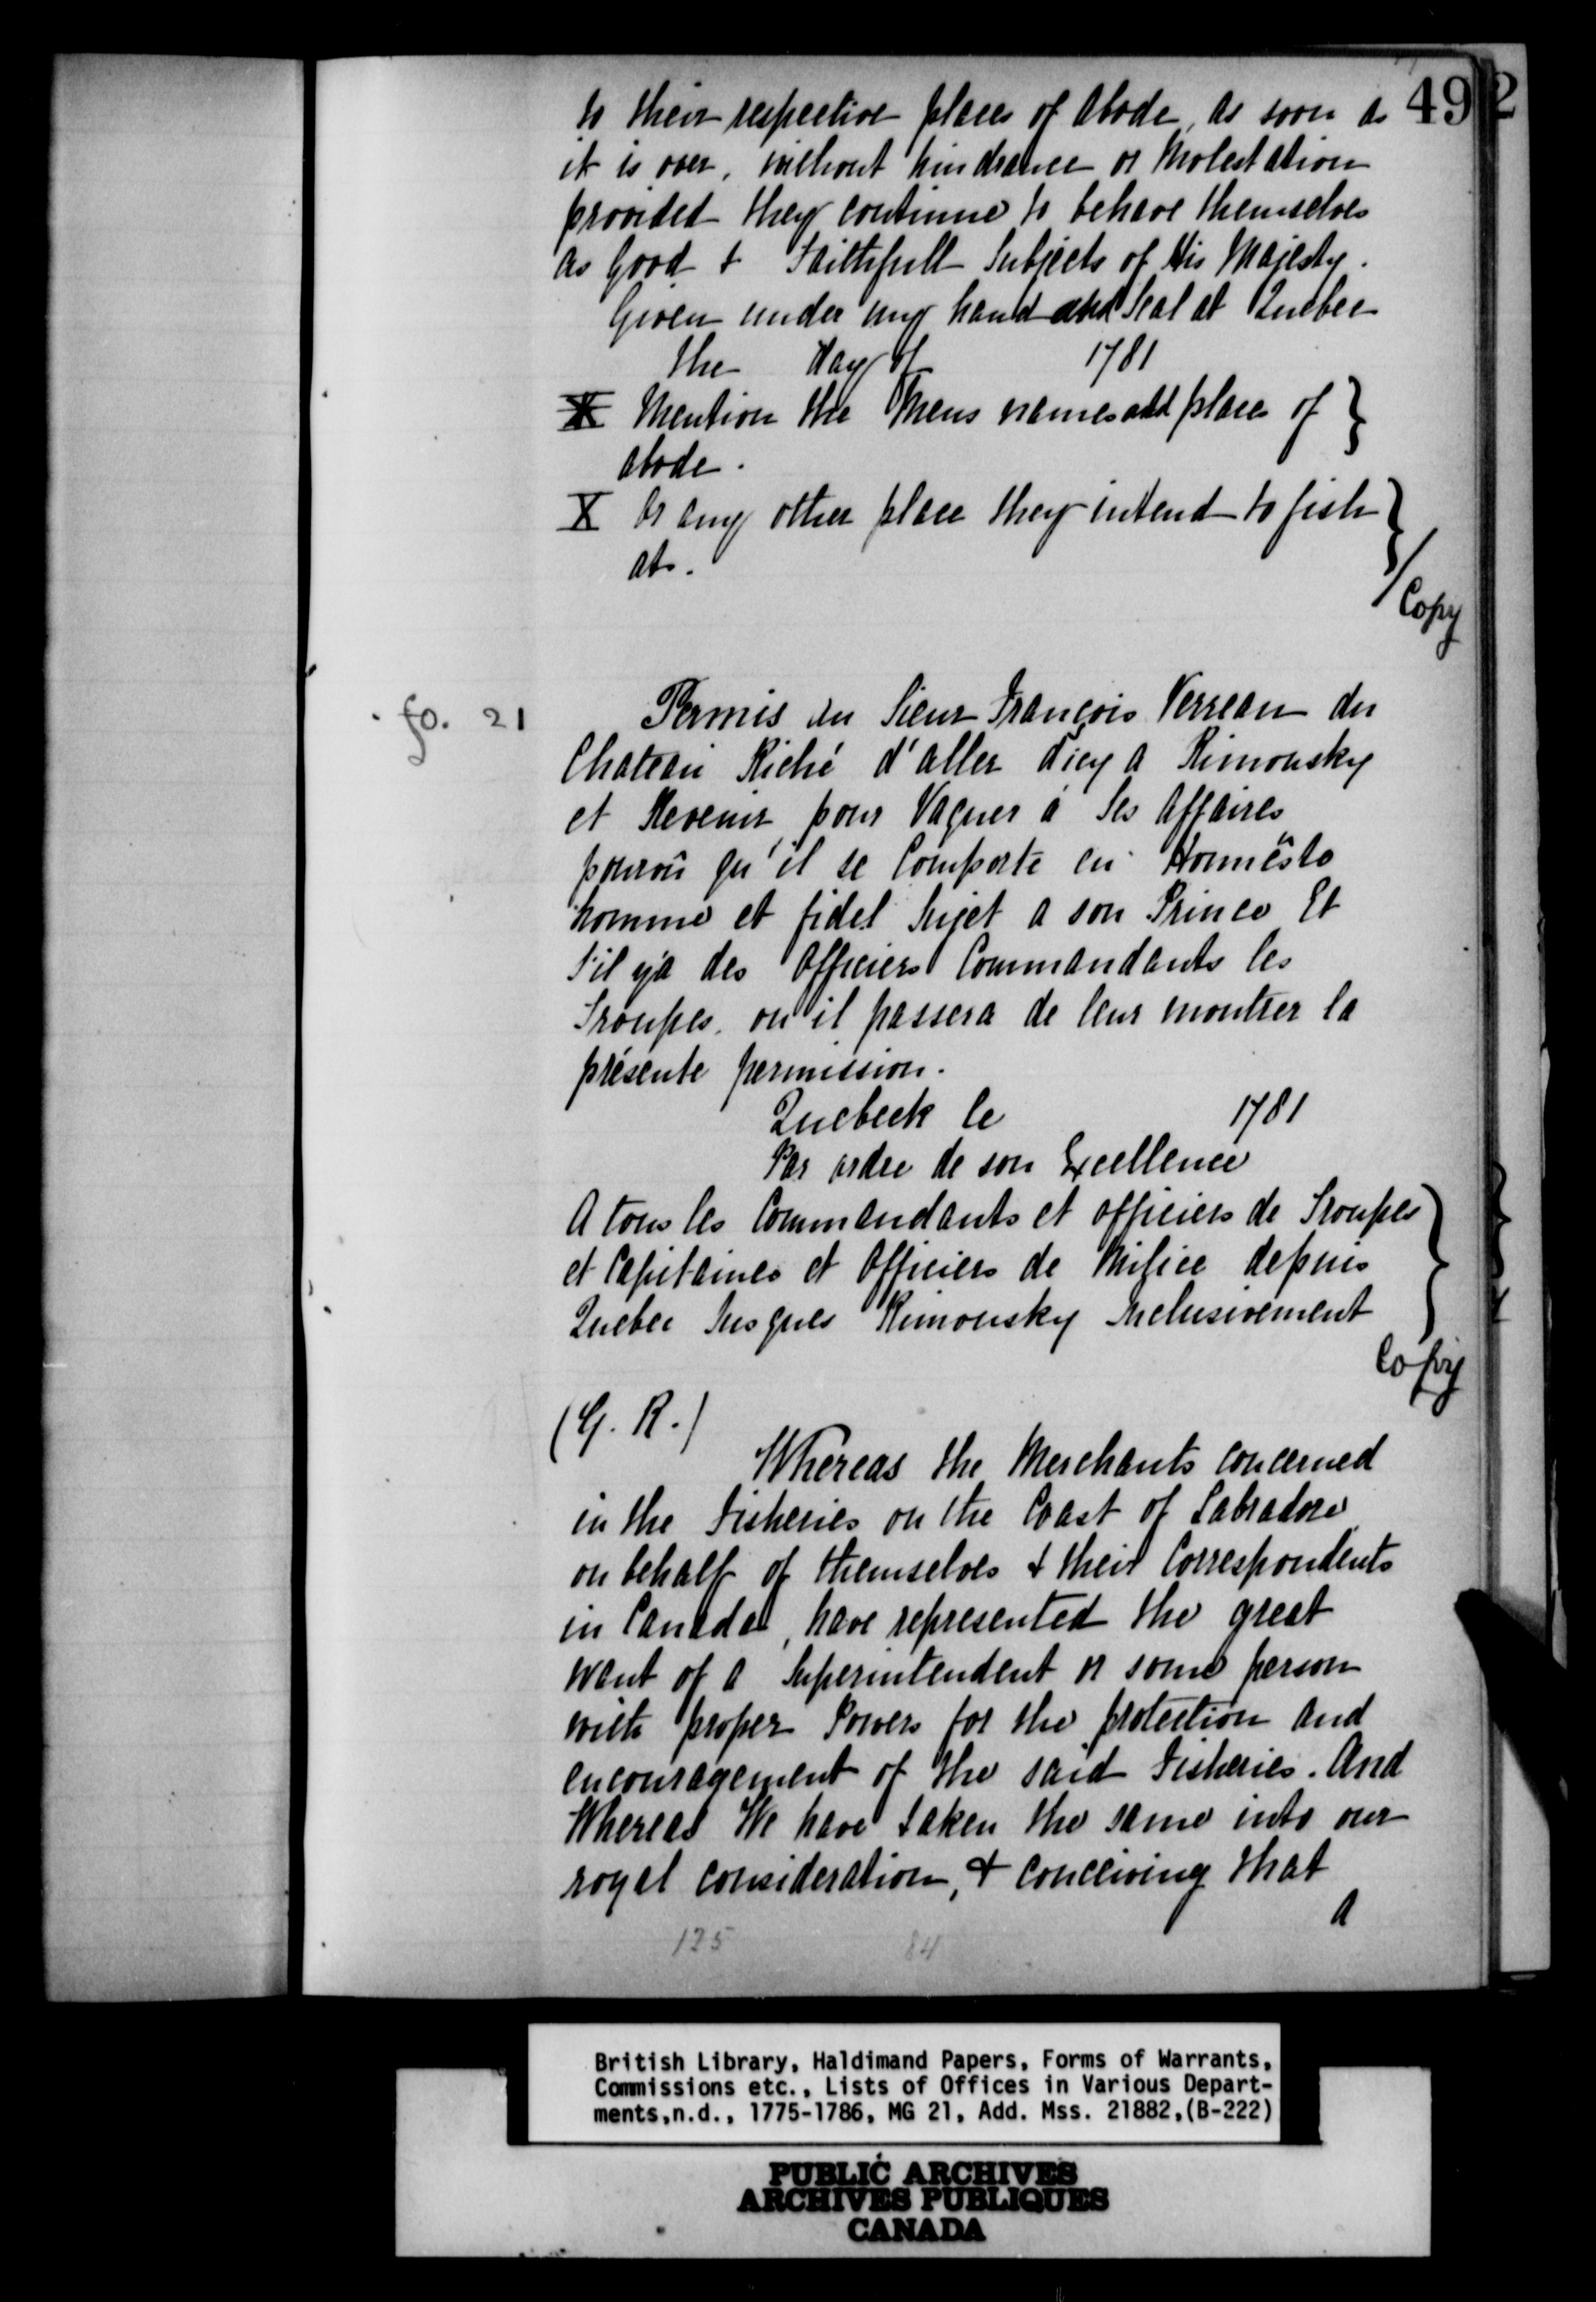 49
2
to their respective places of Abode, as soon as
it is over, without hindrance or Molestation
provided they continue to behave themselves
as Good & Faithfull Subjects of His Majesty.
Given under my hand and Seal at Quebec
the day of 1781
X Mention the Mens names and place of
abode.
X Or any other place they intend to fish
at.
Copy
fo. 21
Permis au Sieur François Verreau du
Chateau Riché d'aller d'icy a Rimousky
et Revenir pour Vaguer à Ses Affaires
pourvû qu'il se Comporte en Honnêste
homme et fidel Sujet a son Prince Et
S'il y'a des Officiers Commandants les
Troupes ou il passera de leur montrer la
présente permission.
Quebeck le 1781
Par ordre de son Excellence
A tous les Commandants et officiers de Troupes
et Capitaines et Officiers de Milice depuis
Quebec Jusques Rimousky Inclusivement
Copy
(G. R.)
Whereas the Merchants concerned
in the Fisheries on the Coast of Labradore
on behalf of themselves & their Correspondents
in Canada, have represented the great
want of a Superintendent or some person
with proper Powers for the protection and
encouragement of the said Fisheries. And
Whereas We have taken the same into our
royal consideration, & conceiving that
a
125 84
British Library, Haldimand Papers, Forms of Warrants,
Commissions etc., Lists of Offices in Various Depart-
ments,n.d., 1775-1786, MG 21, Add. Mss. 21882,(B-222)
PUBLIC ARCHIVES
ARCHIVES PUBLIQUES
CANADA